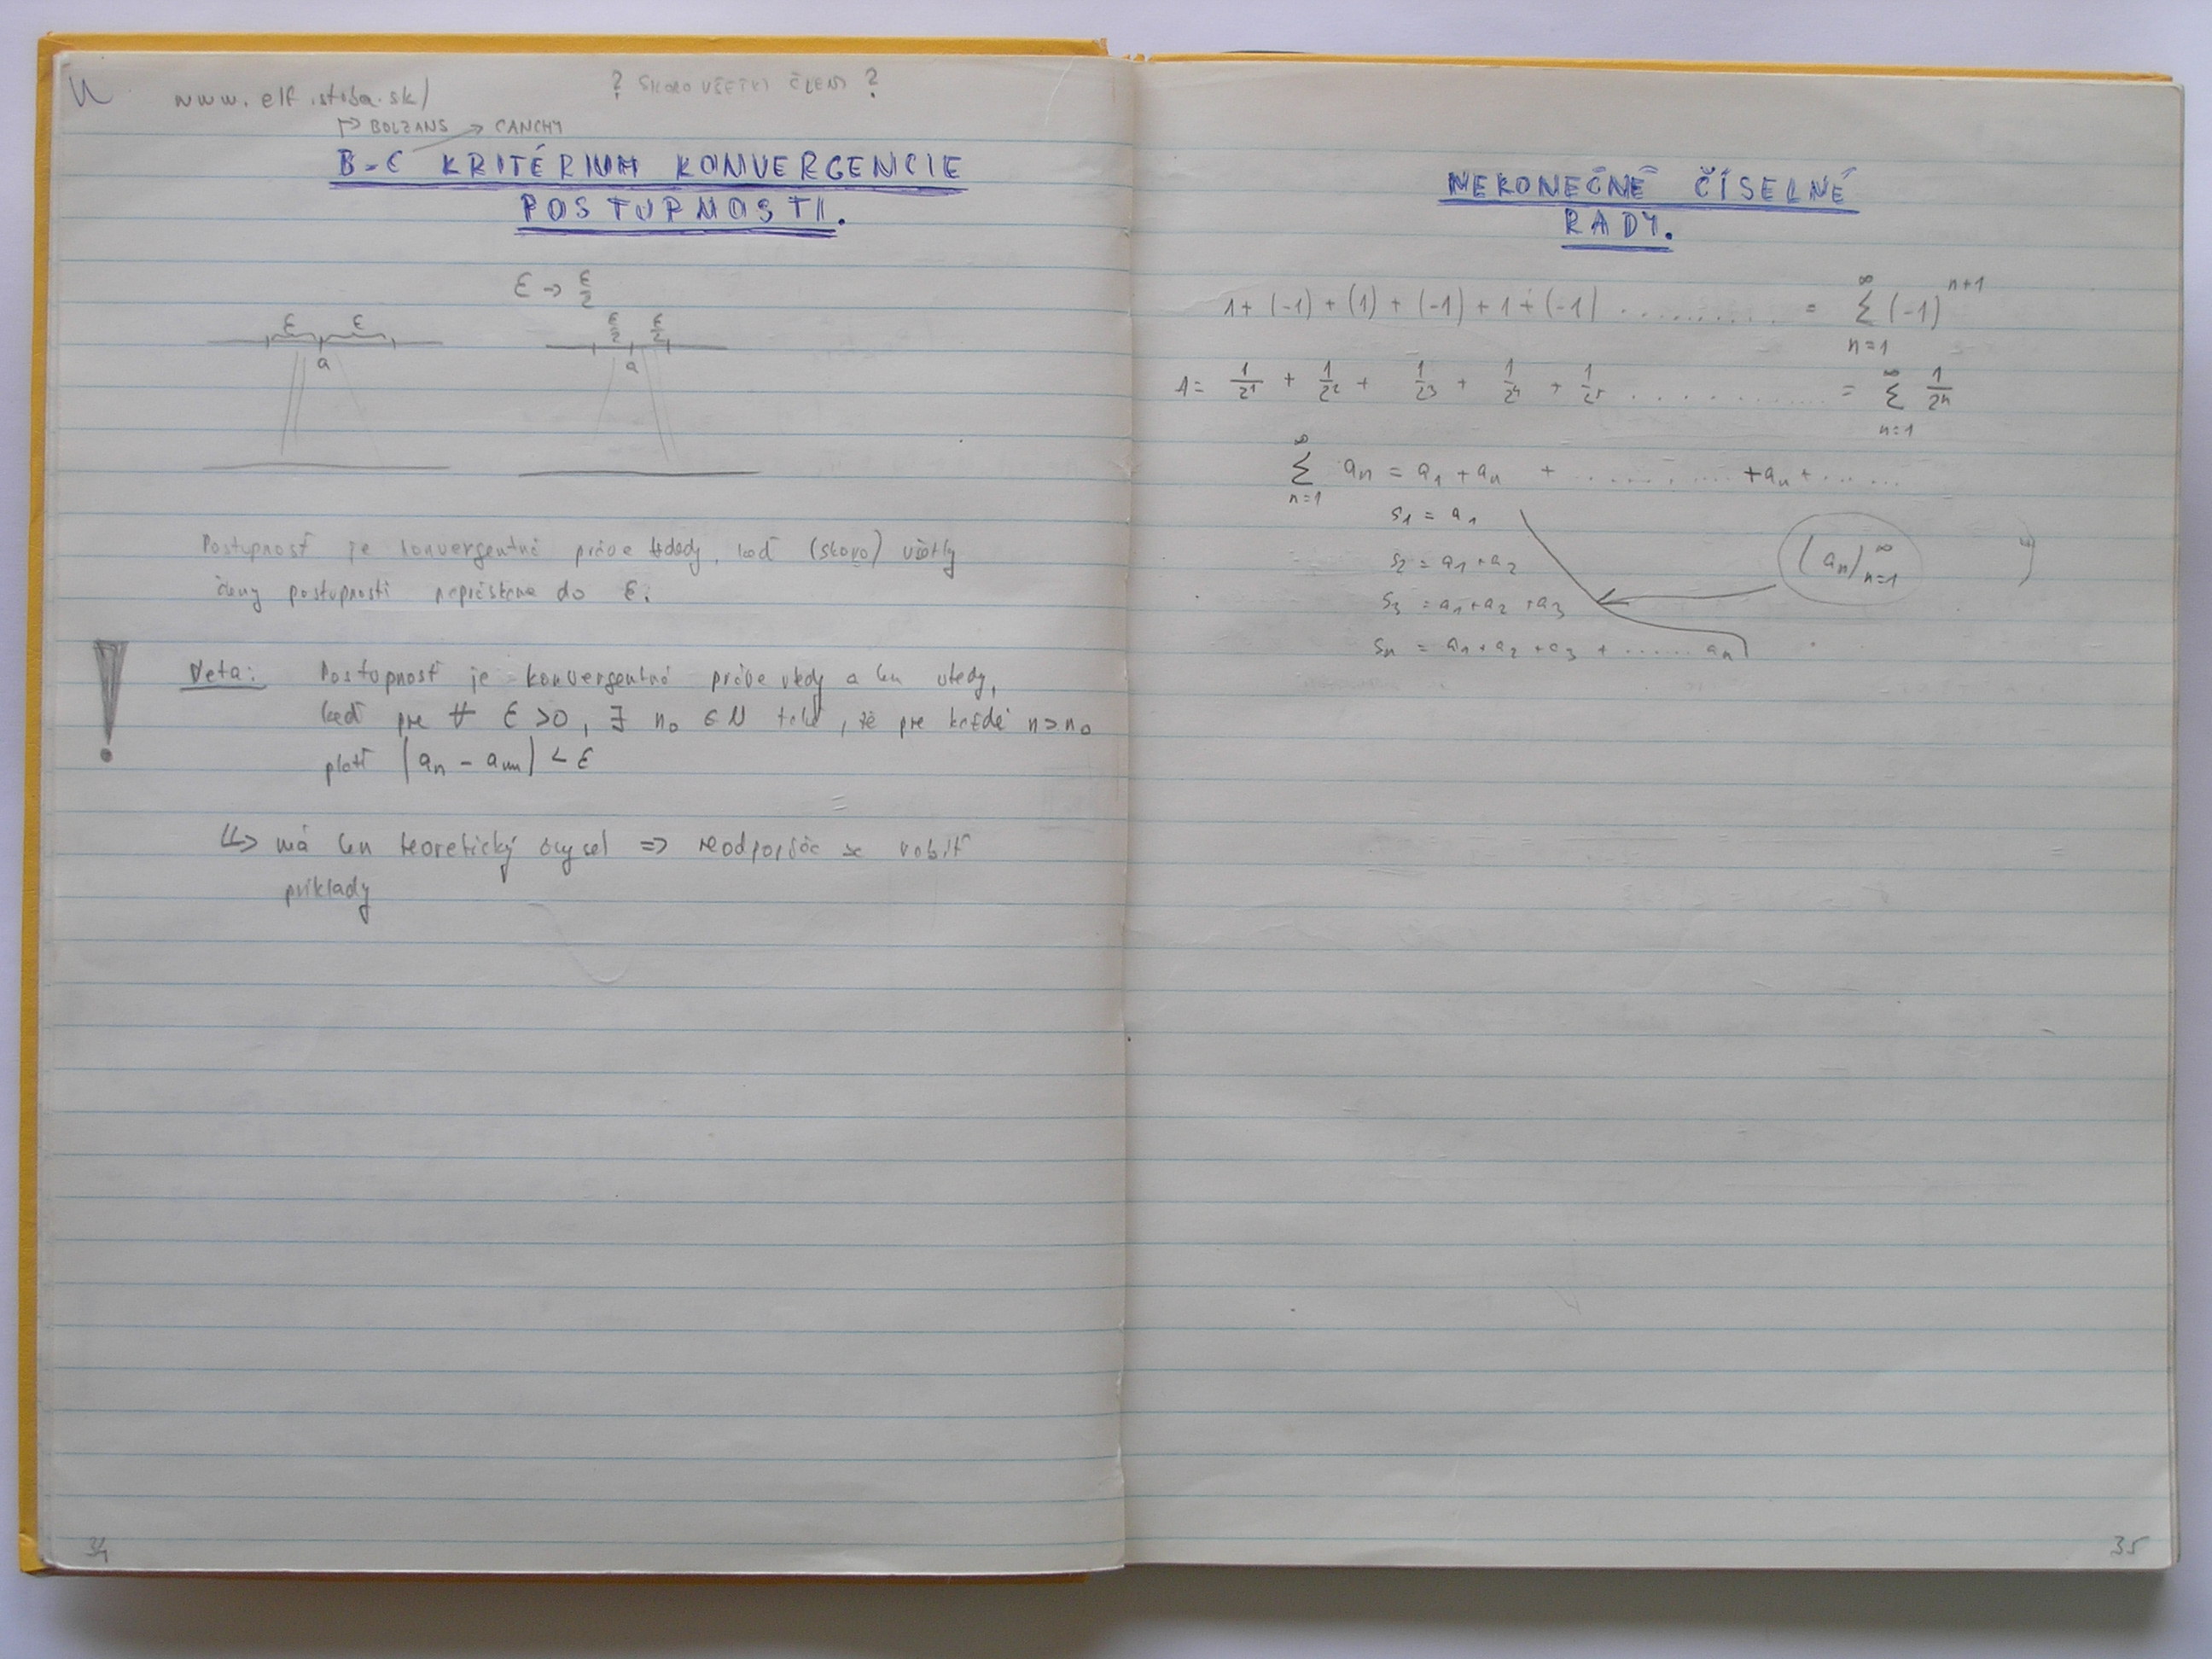 www.elf.stuba.sk/
? SKORO VŠETKY ČLENY ?
BOLZANS → CANCHY
B-C KRITÉRIUM KONVERGENCIE
POSTUPNOSTI.
ε → ε/2
ε ε
a
ε/2 ε/2
a
Postupnosť je konvergentná práve vtedy, keď (skoro) všetky
členy postupnosti do ε.
Veta: Postupnosť je konvergentná práve vtedy a len vtedy,
keď pre ∀ ε > 0, ∃ n₀ ∈ N také, že pre každé n > n₀
platí |aₙ - aₘ| < ε
↳ má len teoretický → robiť
príklady
34
NEKONEČNÉ ČÍSELNÉ
RADY.
1 + (-1) + (1) + (-1) + 1 + (-1) .......... = ∑_{n=1}^{∞} (-1)^{n+1}
1 = 1/2¹ + 1/2² + 1/2³ + 1/2⁴ + 1/2⁵ ............ = ∑_{n=1}^{∞} 1/2ⁿ
∑_{n=1}^{∞} aₙ = a₁ + aₙ + .......... + aₙ + ......
s₁ = a₁
s₂ = a₁ + a₂
(aₙ)_{n=1}^{∞}
s₃ = a₁ + a₂ + a₃
sₙ = a₁ + a₂ + a₃ + ...... aₙ
35